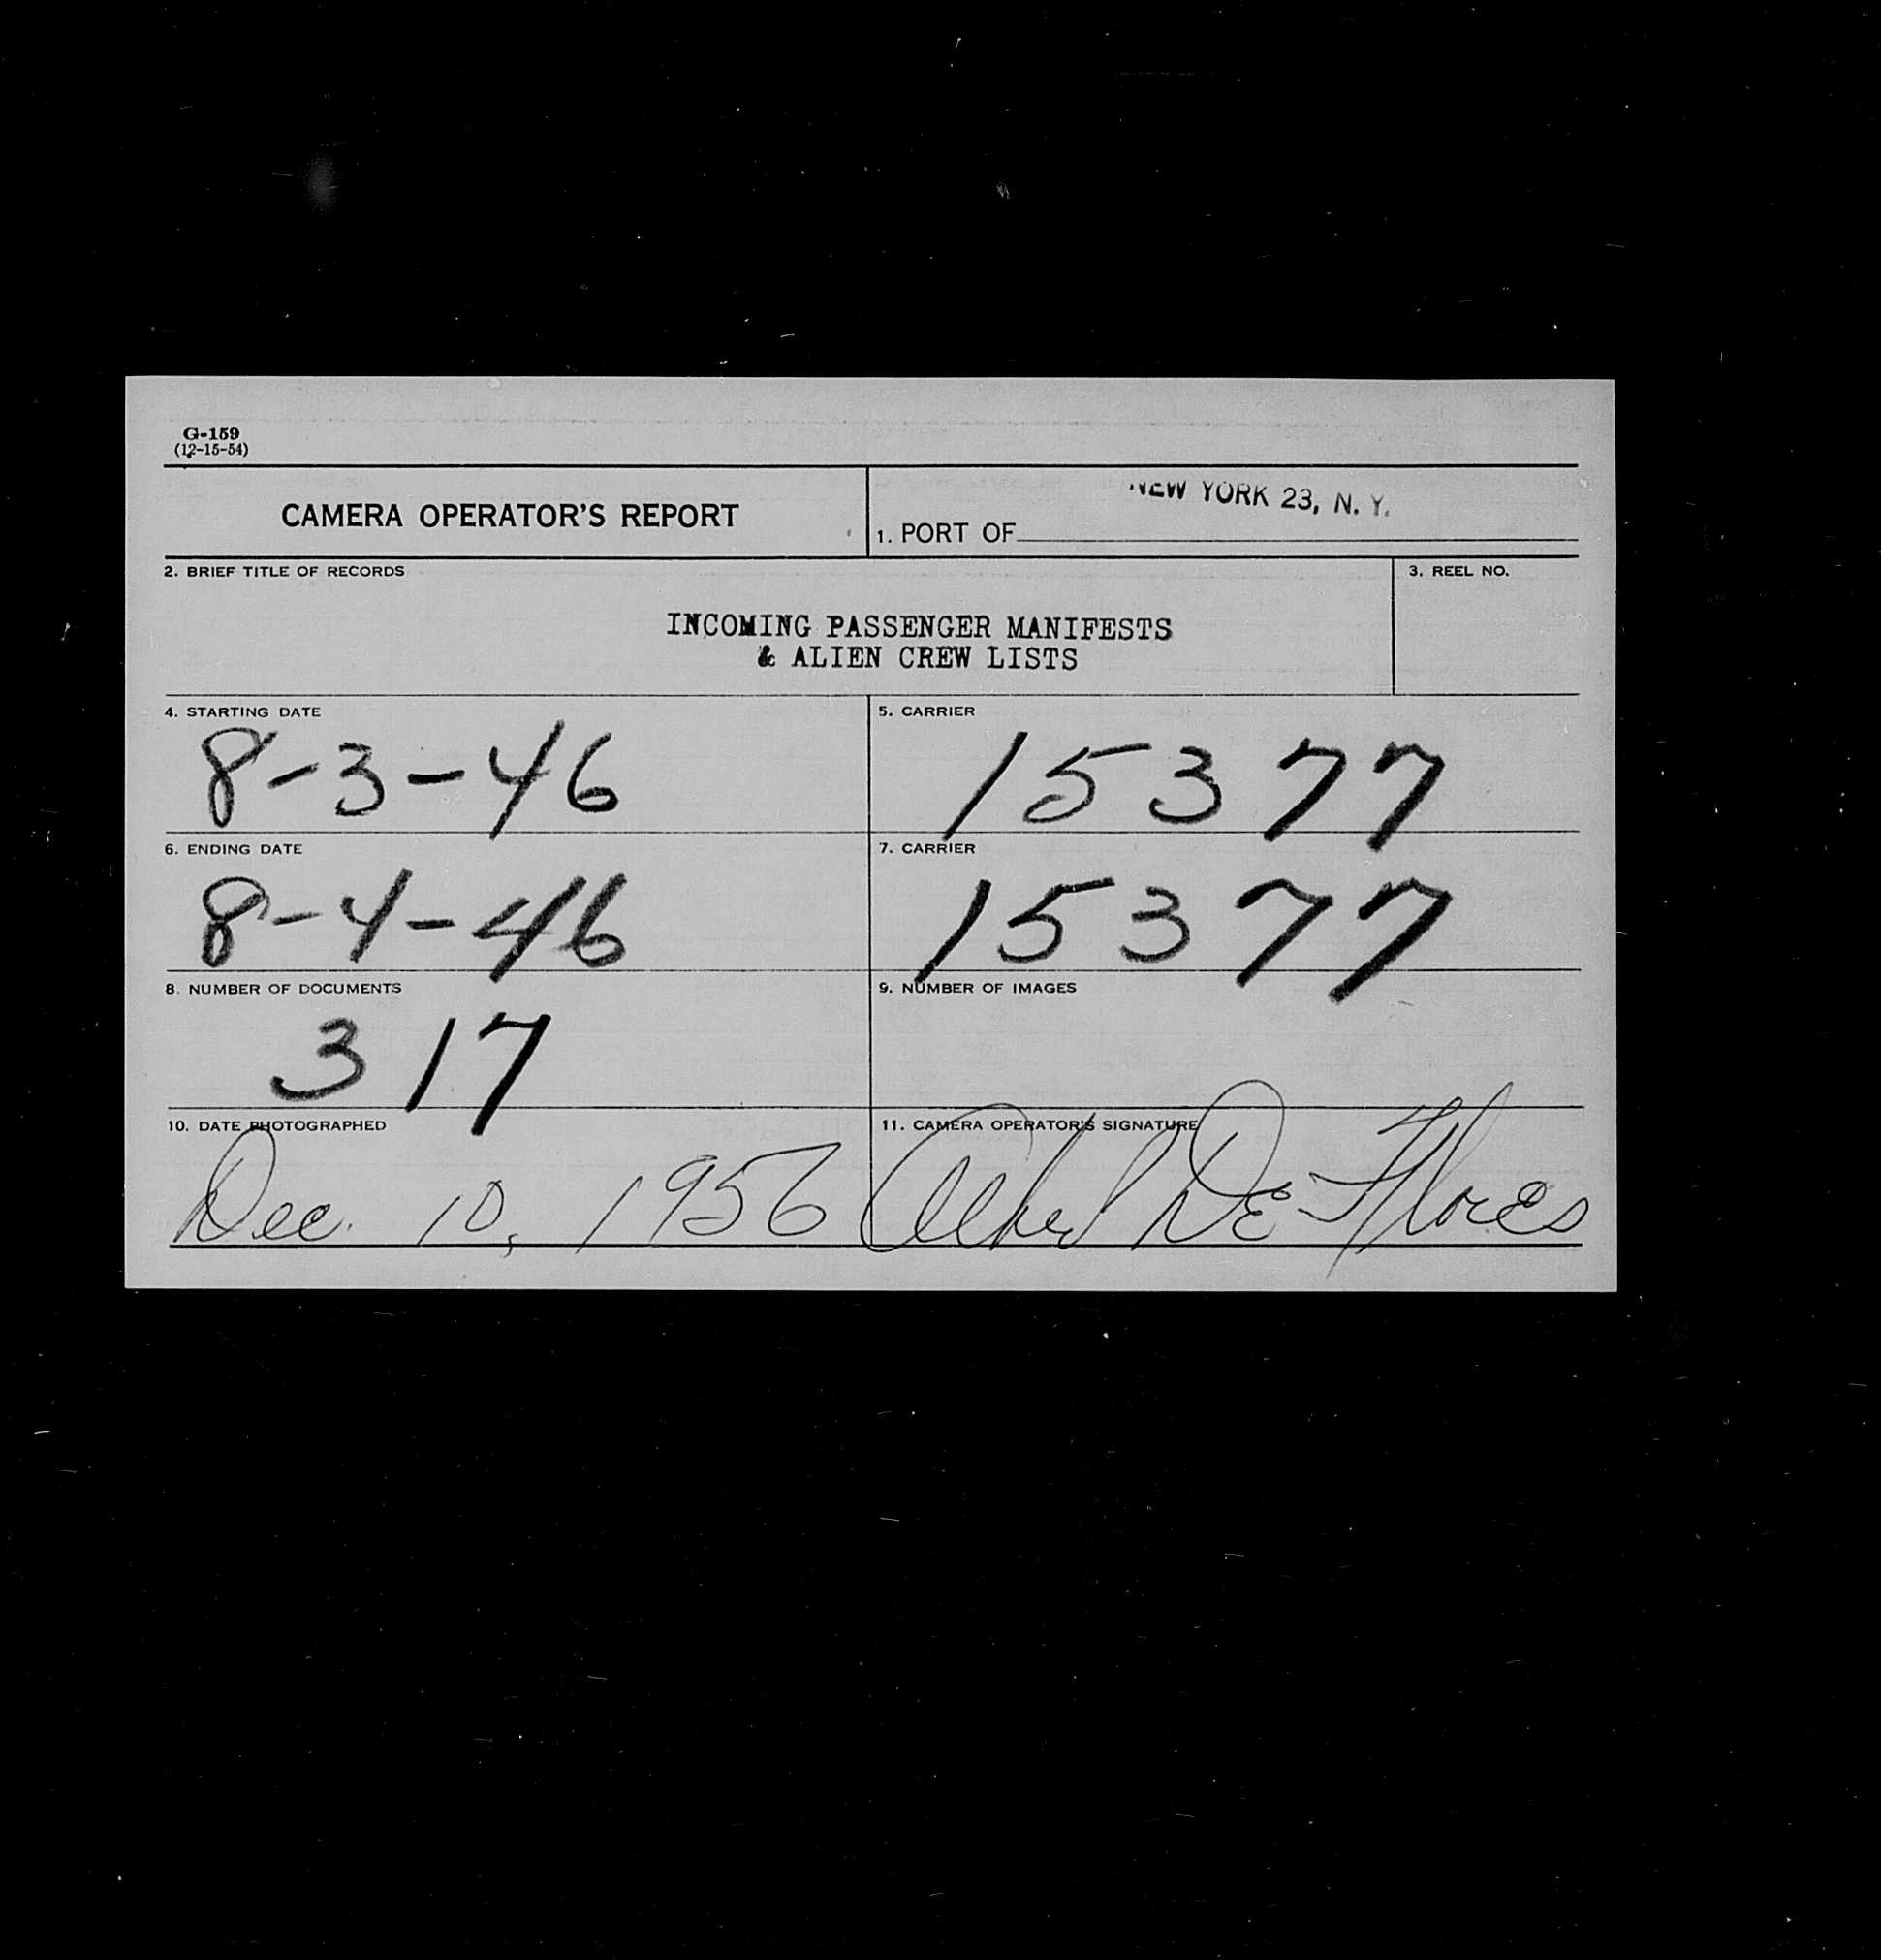 G-159
(12-15-54)
CAMERA OPERATOR'S REPORT
1. PORT OF NEW YORK 23, N. Y.
2. BRIEF TITLE OF RECORDS
INCOMING PASSENGER MANIFESTS
& ALIEN CREW LISTS
3. REEL NO.
4. STARTING DATE
8-3-46
5. CARRIER
15377
6. ENDING DATE
8-4-46
7. CARRIER
15377
8. NUMBER OF DOCUMENTS
317
9. NUMBER OF IMAGES
10. DATE PHOTOGRAPHED
Dec. 10, 1956
11. CAMERA OPERATOR'S SIGNATURE
DE Flores